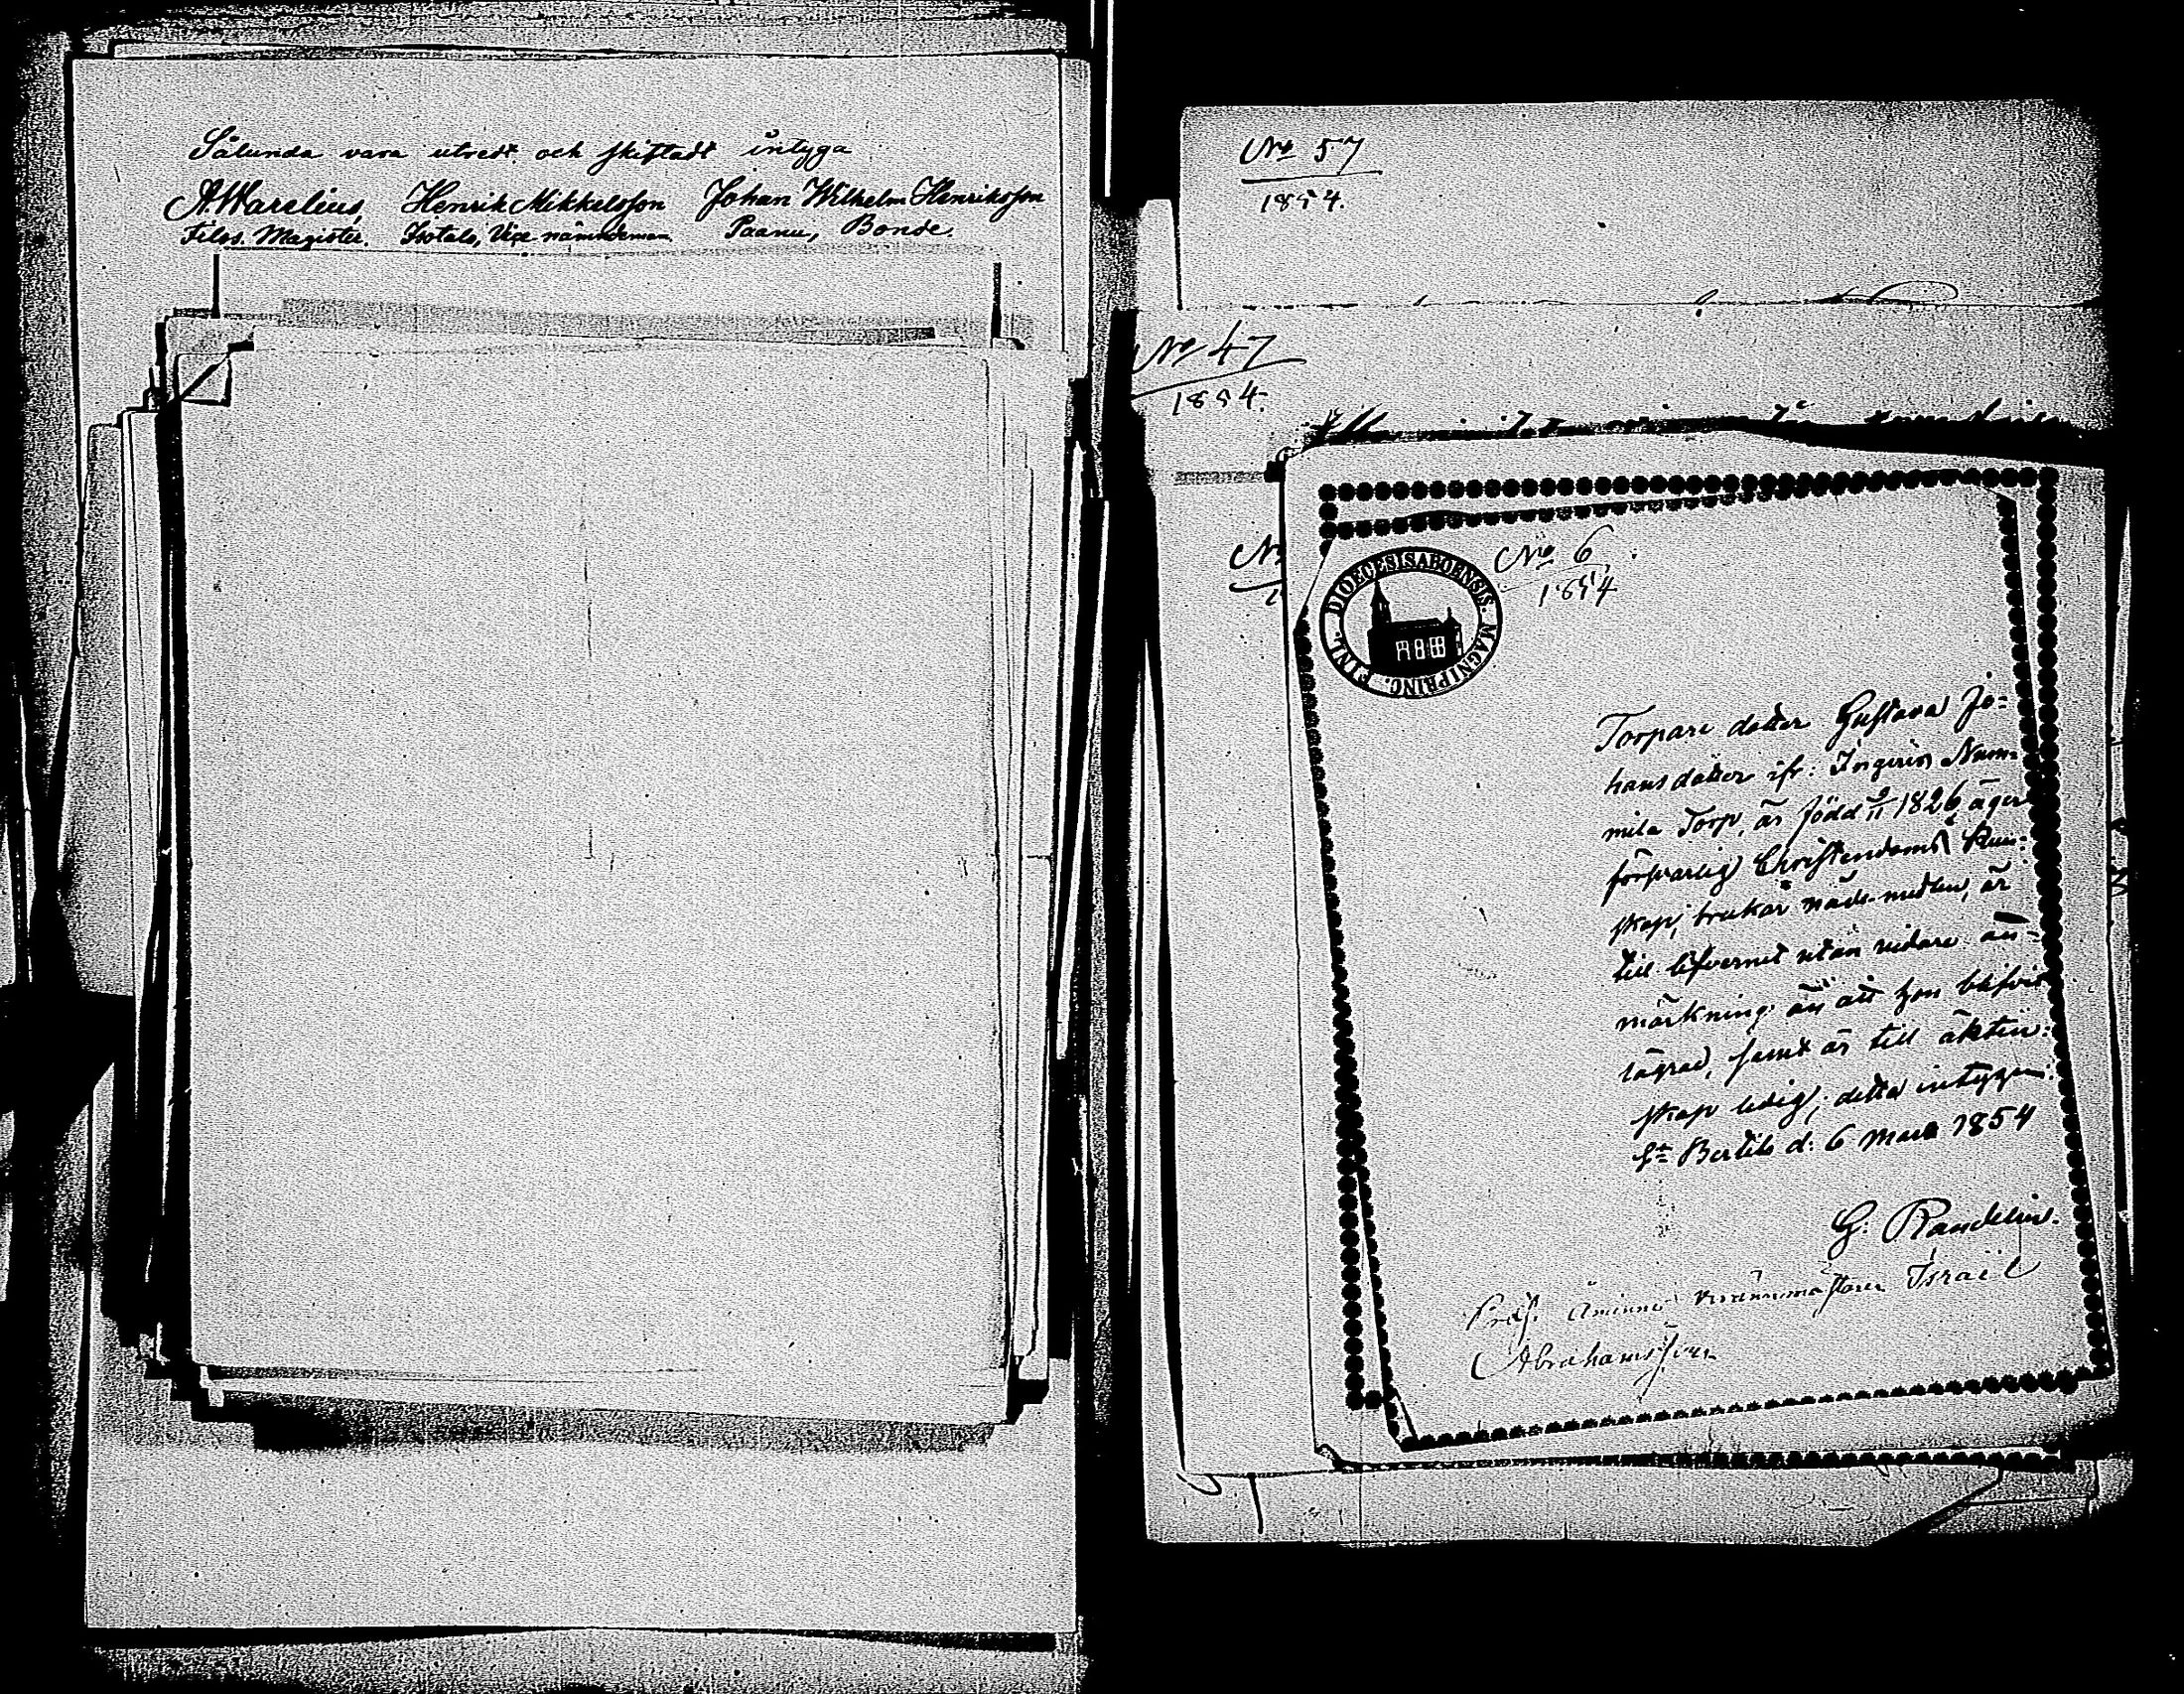 Sålunda vara utredt och skiftadt intyga
A. Warelius, Henrik Mikkelsson Johan Wilhelm Henriksson
Filos. Magister. Isotalo, Vice nämndeman Paanu, Bonde.
No 57
1854.
No 47
1854.
No 6
1854
DIOECESIS ABOENSIS. MAGNI PRINC. FINL.
Torpare dotter Gustava Jo-
hansdotter ifr: Ingeris Num-
mila Torp, är född 9/11 1826 äger
försvarlig Christendoms Kun-
skap, brukar nåde-medlen, är
till lefvernet utan vidare an-
märkning än att hon blifvit
lägrad, samt är till äkten-
skap ledig; detta intygar
St Bertils d: 6 Mars 1854
G: Randelin.
Israel
Abrahamsson